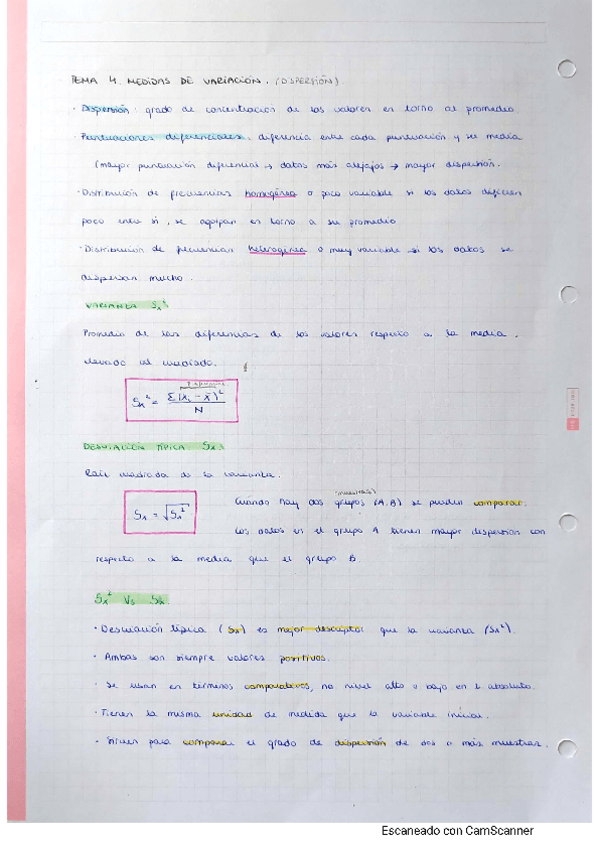 TEMA 4. MEDIDAS DE VARIACIÓN. (DISPERSIÓN)
· Dispersión: grado de concentración de los valores en torno al promedio.
· Puntuaciones diferenciales: diferencia entre cada puntuación y su media
(mayor puntuación diferencial → datos más alejajos → mayor dispersión.
· Distribución de frecuencias homogénea o poco variable si los datos difieren
poco entre sí, se agrupan en torno a su promedio
· Distribución de frecuencias heterogénea o muy variable si los datos se
dispersan mucho.
VARIANZA Sx²
Promedio de las diferencias de los valores respecto a la media.
elevado al cuadrado.
Sx² = Σ(Xi - X̄)² / N
DESVIACIÓN TÍPICA Sx
Raíz cuadrada de la varianza.
Cuando hay dos grupos (A,B) se pueden comparar.
(muestras)
Sx = √Sx²
Los datos en el grupo A tienen mayor dispersión con
respecto a la media que el grupo B.
Sx² Vs Sx
· Desviación típica (Sx) es mejor descriptor que la varianza (Sx²).
· Ambas son siempre valores positivos.
· Se usan en términos comparativos, no nivel alto o bajo en t absoluto.
· Tienen la misma unidad de medida que la variable inicial.
· Sirven para comparar el grado de dispersión de dos o más muestras.
Escaneado con CamScanner